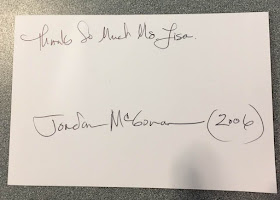 Thanks So Much Ms. Lisa.
Jordan McGowan (2006)